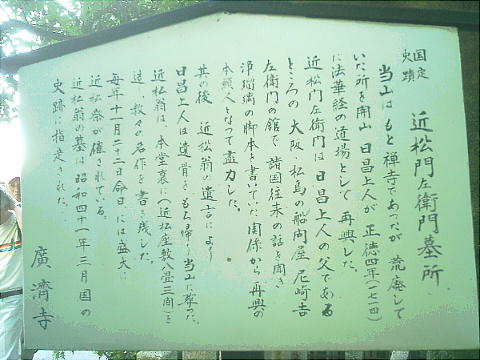 国定
史蹟
近松門左衛門墓所
当山はもと禅寺であつたが荒廃して
いた所を開山日昌上人が正徳四年(一七一四)
に法華経の道場として再興した。
近松門左衛門は日昌上人の父である
ところの大阪・松島の船問屋尼崎吉
左衛門の館で諸国往来の話を聞き
浄瑠璃の脚本を書いていた関係から再興の
本願人となって盡力した。
其の後近松翁の遺言により
日昌上人は遺骨をもち帰り当山に葬った。
近松翁は、本堂裏に(近松座敷八畳三間)を
造り数々の名作を書き残した。
毎年十一月二十二日命日には盛大に
近松祭が催されている。
近松翁の墓は昭和四十一年三月国の
史跡に指定された。
廣濟寺